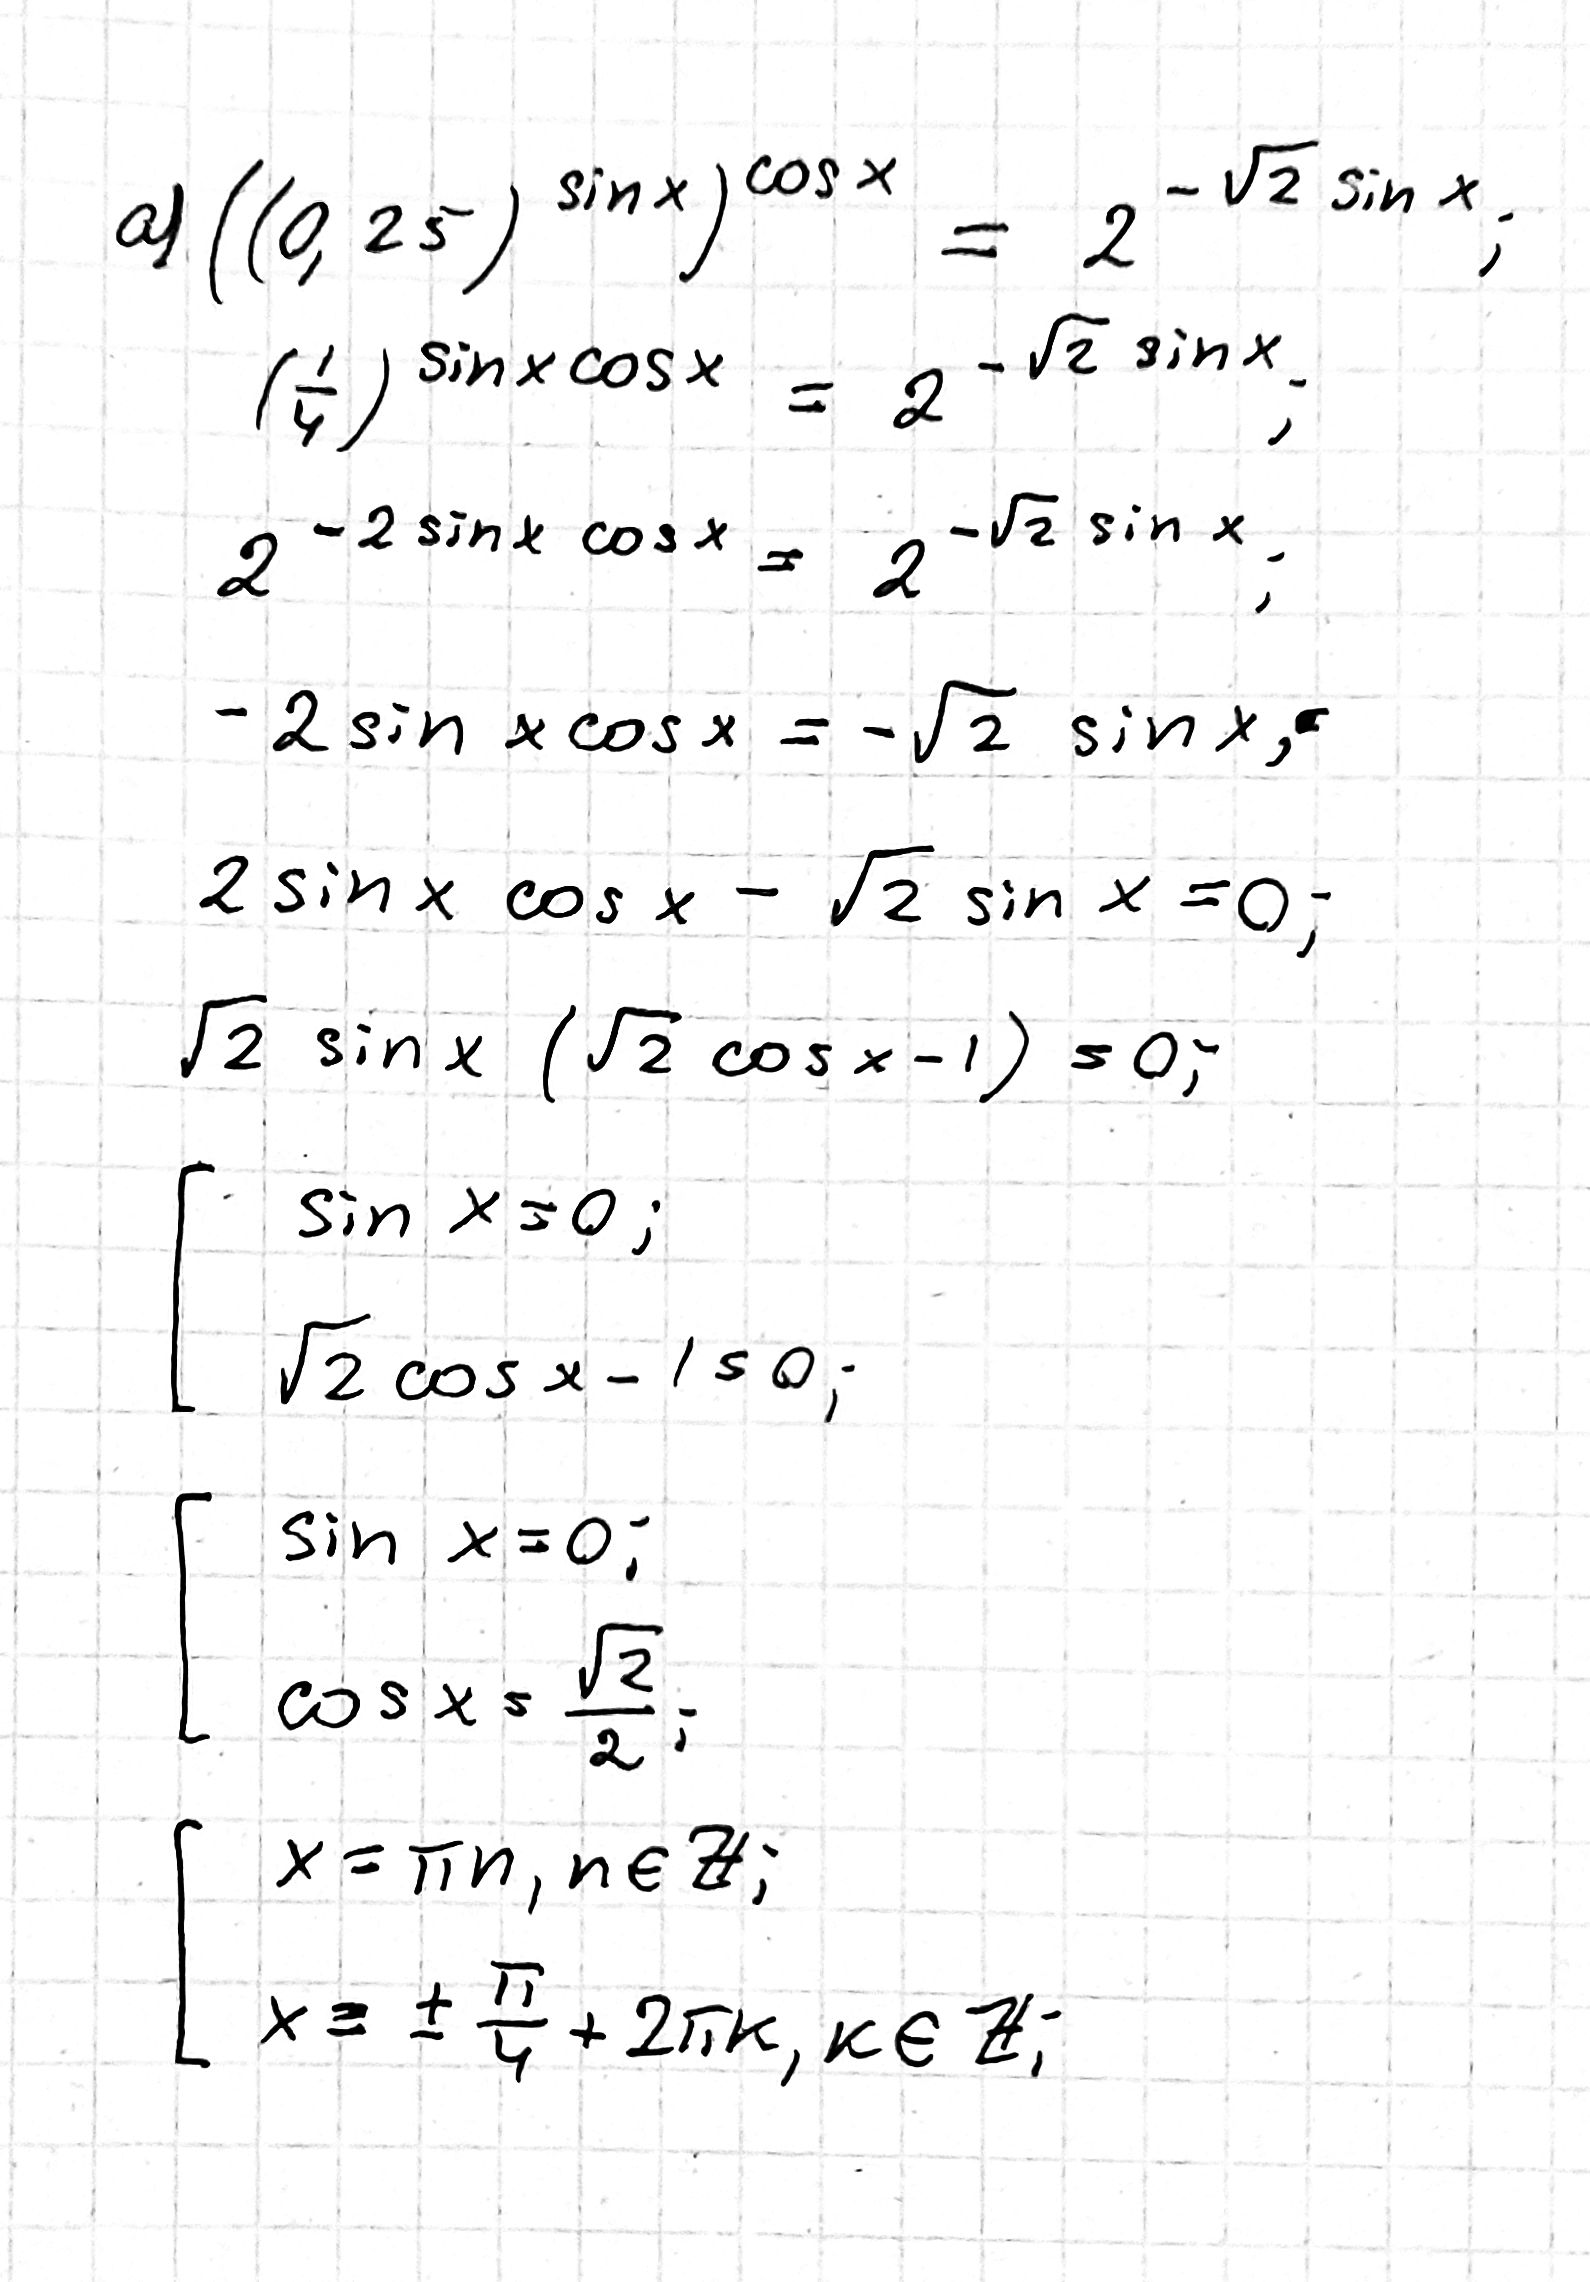 а) ((0,25)^{sin x})^{cos x} = 2^{-√2 sin x};
(1/4)^{sin x cos x} = 2^{-√2 sin x};
2^{-2 sin x cos x} = 2^{-√2 sin x};
-2 sin x cos x = -√2 sin x;
2 sin x cos x - √2 sin x = 0;
√2 sin x (√2 cos x - 1) = 0;
[ sin x = 0;
√2 cos x - 1 = 0;
[ sin x = 0;
cos x = √2/2;
[ x = πn, n ∈ ℤ;
x = ± π/4 + 2πk, k ∈ ℤ;